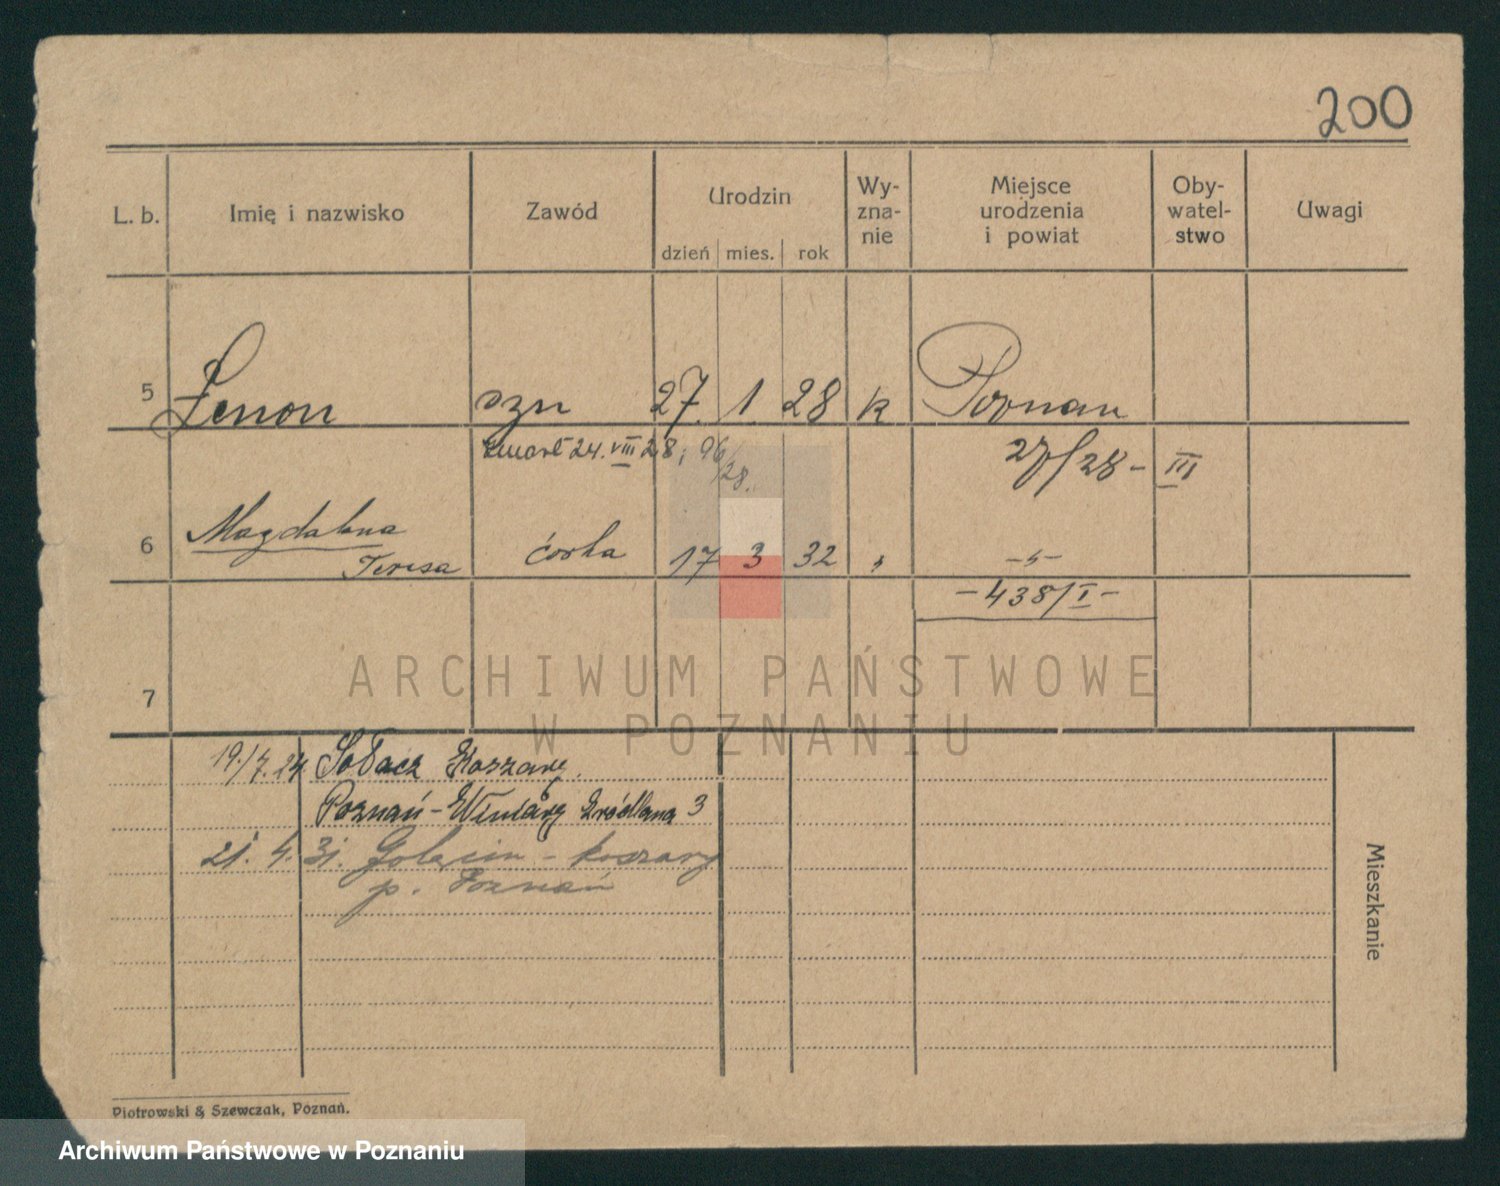 200
L. b. Imię i nazwisko Zawód Urodzin Wy-zna-nie Miejsce urodzenia i powiat Oby-watel-stwo Uwagi
dzień mies. rok
5 Zenon syn 27. 1 28 k Poznań
zmarł 24. VIII 28, 96/28. 27/28 - III
6 Magdalena
Teresa córka 17 3 32 " -"-
-438/I-
7
ARCHIWUM PAŃSTWOWE
W POZNANIU
19./7. 24 Sołacz Koszary.
Poznań-Winiary Źródlana 3
21. 4. 31. Golęcin - koszary
p. Poznań
Mieszkanie
Piotrowski & Szewczak, Poznań.
Archiwum Państwowe w Poznaniu